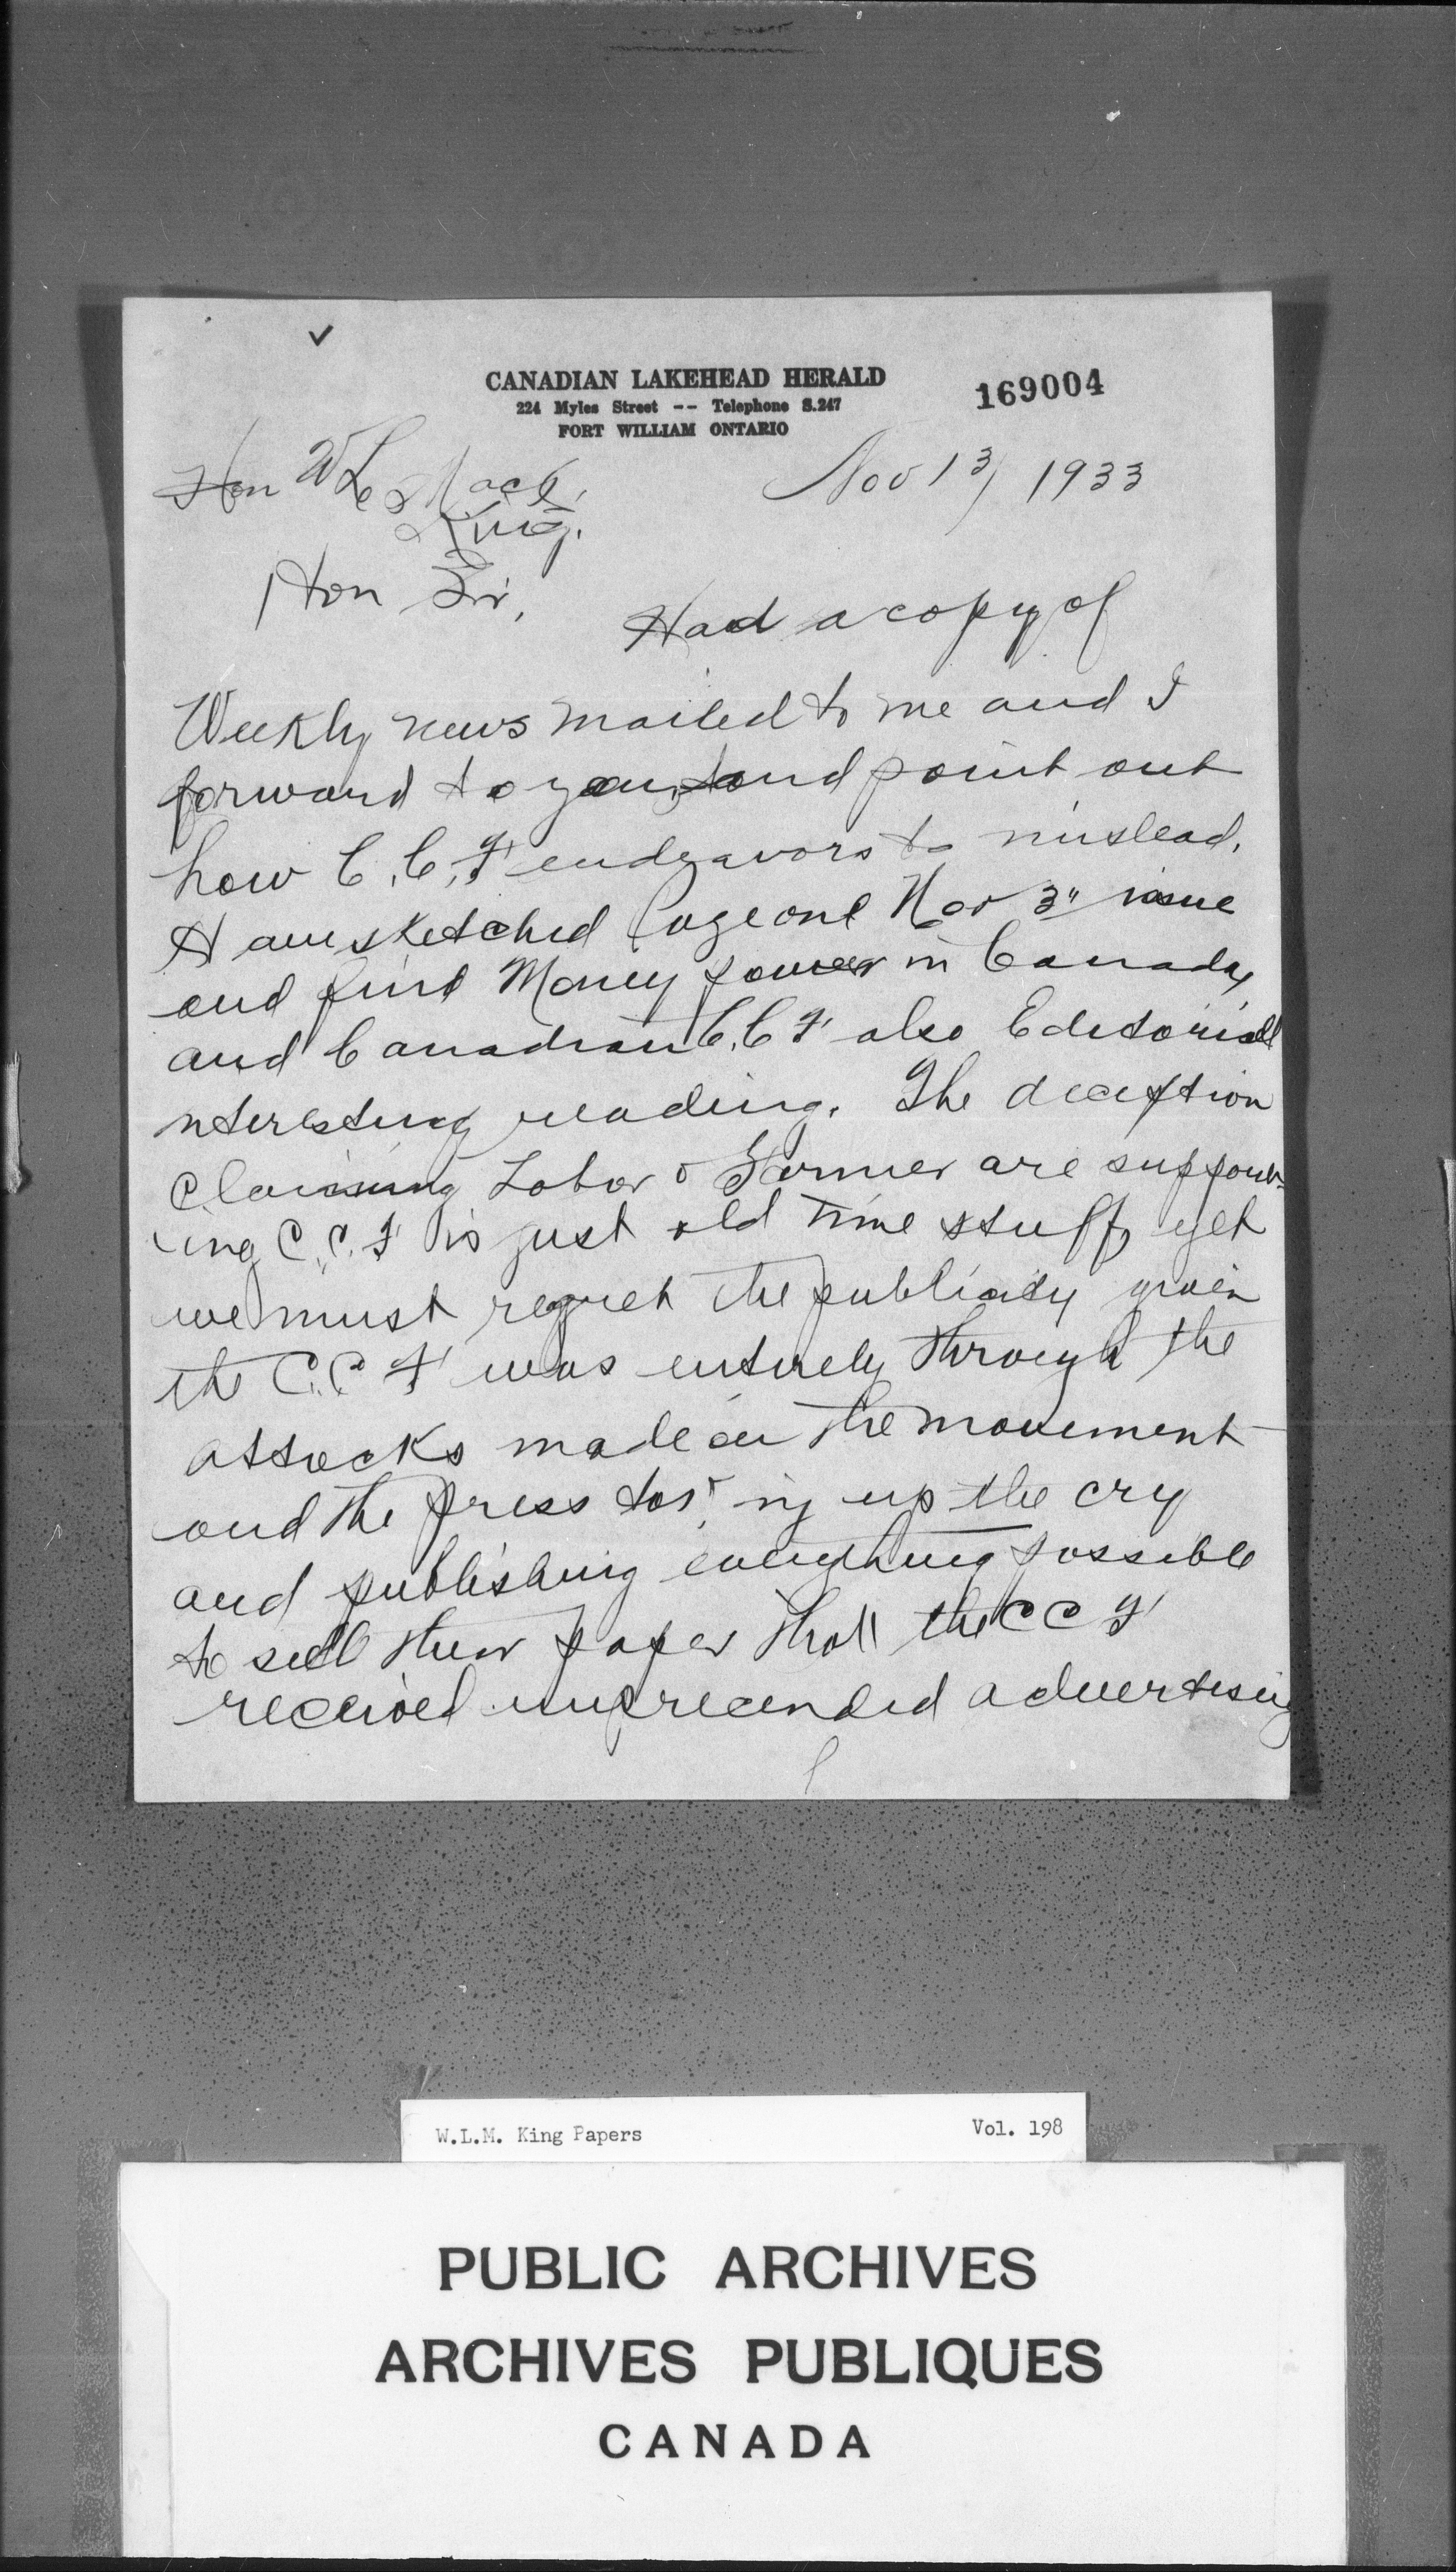 CANADIAN LAKEHEAD HERALD
169004
224 Myles Street -- Telephone S.247
FORT WILLIAM ONTARIO
Hon W L Mack.
King.
Nov 13/ 1933
Hon Sir,
Had a copy of
Weekly news mailed to me and I
forward to you, and point out
how C.C.F endeavors to mislead.
Page one Nov 3" issue
and find Money power in Canada
and Canadian C.C F also Editorial
nteresting reading. The deception
Claiming Labor & Farmer are support-
ing C.C.F is just old time stuff, yet
we must regret the publicity given
the C.C F was entirely through the
attacks made on the movement
and the press up the cry
and publishing everything possible
to sell their paper that the C C F
received unprecended advertising
W.L.M. King Papers
Vol. 198
PUBLIC ARCHIVES
ARCHIVES PUBLIQUES
CANADA